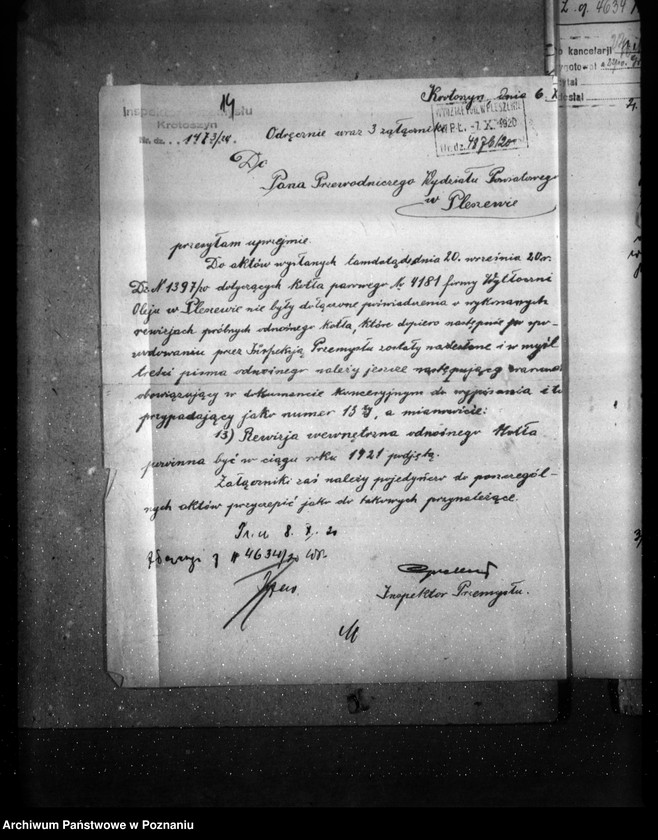 L. g. 4634
do kancelarji
14
Krotoszyn dnia 6. X
Krotoszyn
Nr. dz. . . 1473/20.
WYDZIAŁ POW. W PLESZEWIE
WPŁ. -7. X. 1920
L. dz. 4876/20
Odręcznie wraz 3 załącznik
Do
Pana Przewodniczego Wydziału Powiatowego
w Pleszewie
przesyłam uprzejmie.
Do aktów wysłanych tamdotąd dnia 20. września 20 r.
Dz. N 1397/20 dotyczących kotła parowego No 4181 firmy Wytłoczni
Oleju w Pleszewie nie były dołączone poświadczenia o wykonanych
rewizjach próbnych odnośnego kotła, które dopiero następnie po spo-
wodowaniu przez Inspekcją Przemysłu zostały nadesłane i w myśl
treści pisma odnośnego należy jeszcze następującą
obowiązujący w dokumencie koncesyjnym do wypisania i to
przypadający jako numer 13 ty, a mianowicie:
13) Rewizja wewnętrzna odnośnego Kotła
powinna być w ciągu roku 1921 podjętą.
Załączniki zaś należy pojedyńczo do poszczegól-
nych aktów przyczepić jako do takowych przynależące.
8. X. 20
4634/20
Inspektor Przemysłu.
Archiwum Państwowe w Poznaniu